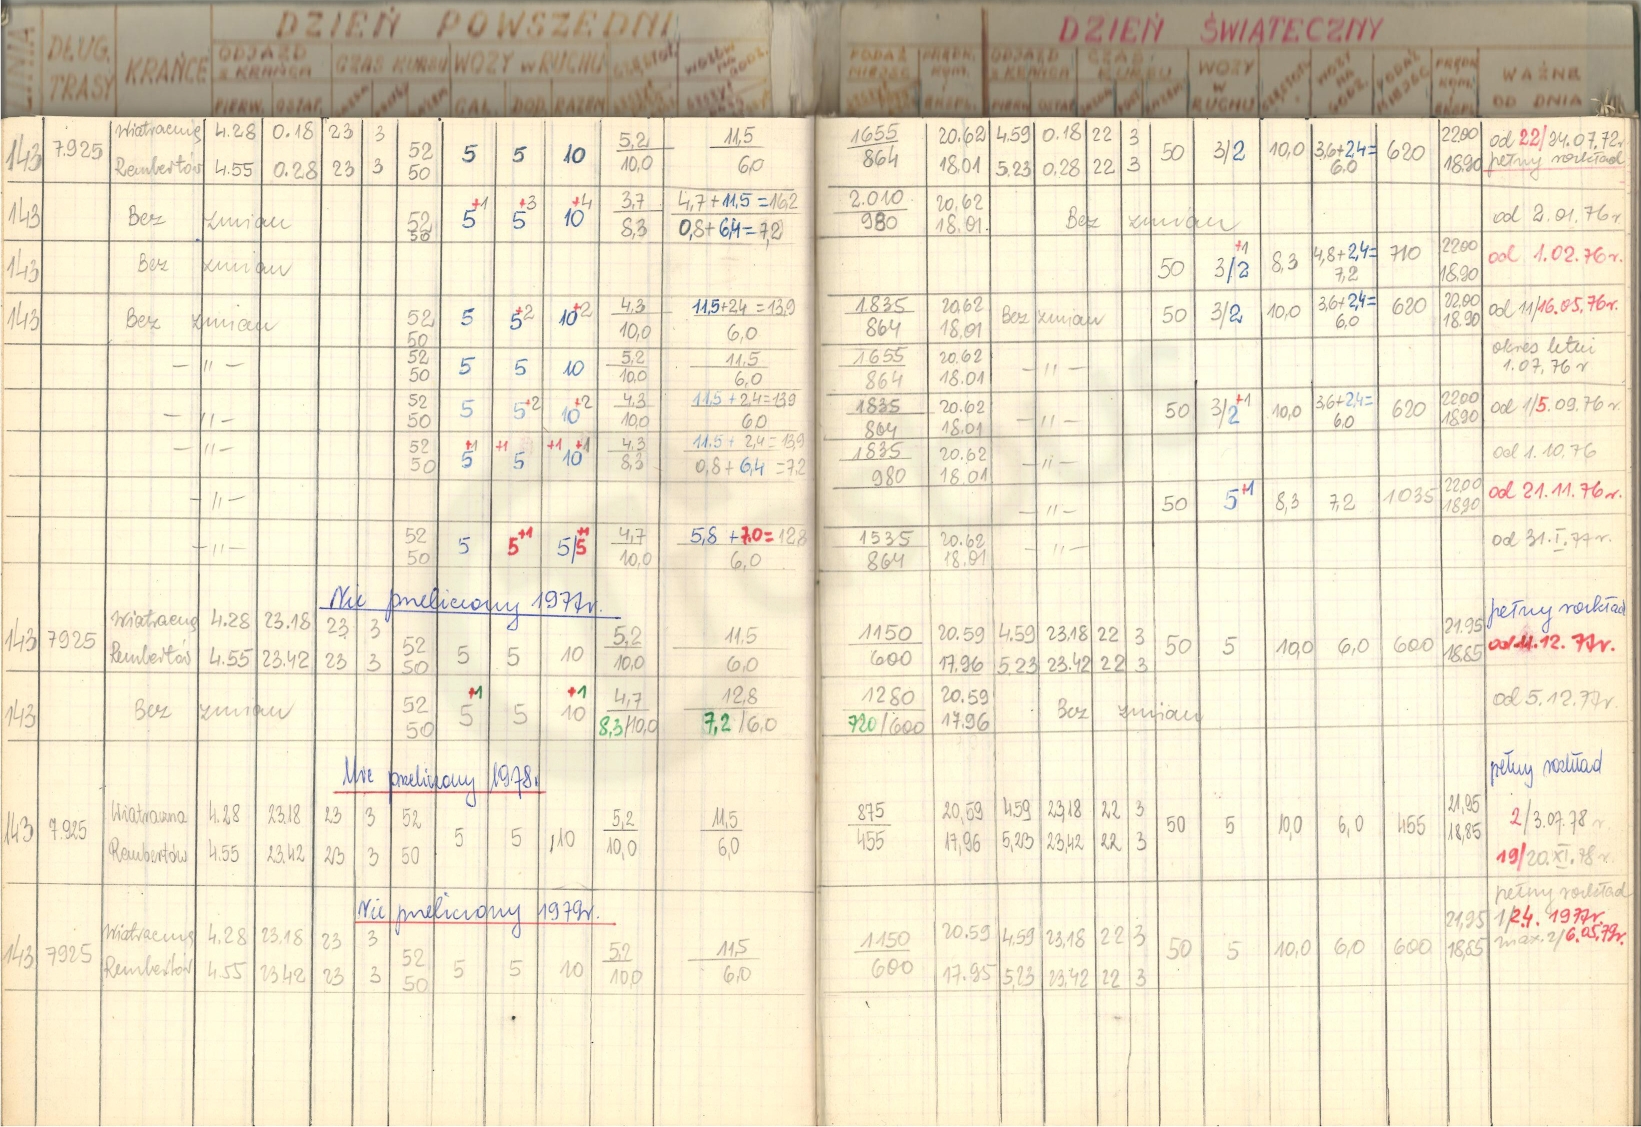 DZIEŃ POWSZEDNI DZIEŃ ŚWIĄTECZNY
DŁUG. TRASY KRAŃCE ODJAZD z KRAŃCA CZAS KURSU WOZY w RUCHU
PIERW. OSTAT. CAŁ. DOD. RAZEM
PODAŻ MIEJSC ODJAZD z KRAŃCA CZAS KURSU WOZY W RUCHU WOZY NA GODZ. PODAŻ MIEJSC WAŻNE OD DNIA
143 7.925 Wiatraczna 4.28 0.18 23 3 52 5 5 10 5,2 11,5 1655 20.62 4.59 0.18 22 3 50 3/2 10,0 3,6+2,4= 620 22.00 od 22/24.07.72r
Rembertów 4.55 0.28 23 3 50 10,0 6,0 864 18.01 5.23 0.28 22 3 6.0 18.90 pełny rozkład
143 Bez zmian 52 5+1 5+3 10+4 3,7 4,7+11,5=16,2 2.010 20,62 Bez zmian od 2.01.76r
50 8,3 0,8+6,4=7,2 980 18.01
143 Bez zmian 50 3/2+1 8,3 4,8+2,4= 710 22.00 od 1.02.76r.
7,2 18.90
143 Bez zmian 52 5 5+2 10+2 4,3 11,5+2,4=13,9 1.835 20.62 Bez zmian 50 3/2 10,0 3,6+2,4= 620 22.00 od 11/16.05.76r.
50 10,0 6,0 864 18.01 6,0 18.90
— 〃 — 52 5 5 10 5,2 11,5 1655 20.62 — 〃 — okres letni
50 10,0 6,0 864 18.01 1.07.76r
— 〃 — 52 5 5+2 10+2 4,3 11,5+2,4=13,9 1835 20.62 — 〃 — 50 3/2+1 10,0 3,6+2,4= 620 22.00 od 1/5.09.76r.
50 10,0 6,0 864 18.01 6,0 18.90
— 〃 — 52 5+1 +1 5 +1 10+1 4,3 11,5+2,4=13,9 1835 20.62 — 〃 — od 1.10.76
50 8,3 0,8+6,4=7,2 980 18.01
— 〃 — — 〃 — 50 5+1 8,3 7,2 1.035 22.00 od 21.11.76r.
18.90
— 〃 — 52 5 5+1 5/5+1 4,7 5,8+7,0=12,8 1535 20.62 — 〃 — od 31.I.77r.
50 10,0 6,0 864 18.01
Nie przeliczony 1977r.
143 7925 Wiatraczna 4.28 23.18 23 3 52 5 5 10 5,2 11,5 1150 20.59 4.59 23.18 22 3 50 5 10,0 6,0 600 21.95 pełny rozkład
Rembertów 4.55 23.42 23 3 50 10,0 6,0 600 17.96 5.23 23.42 22 3 18.85 12.77r.
143 Bez zmian 52 5+1 5 10+1 4,7 12,8 1280 20.59 Bez zmian od 5.12.77r.
50 8,3/10,0 7,2/6,0 720/600 17.96
Nie przeliczony 1978r. pełny rozkład
143 7.925 Wiatraczna 4.28 23.18 23 3 52 5 5 10 5,2 11,5 875 20,59 4.59 23,18 22 3 50 5 10,0 6,0 455 21,95 2/3.07.78r.
Rembertów 4.55 23.42 23 3 50 10,0 6,0 455 17,96 5,23 23,42 22 3 18,85 19/20.XI.78r.
Nie przeliczony 1979r. pełny rozkład
143 7925 Wiatraczna 4.28 23.18 23 3 52 5 5 10 5,2 11,5 1150 20.59 4.59 23,18 22 3 50 5 10,0 6,0 600 21,95 1/2.4. 1977r.
Rembertów 4.55 23.42 23 3 50 10,0 6,0 600 17.95 5,23 23,42 22 3 18,85 max. 2/6.05.79r.